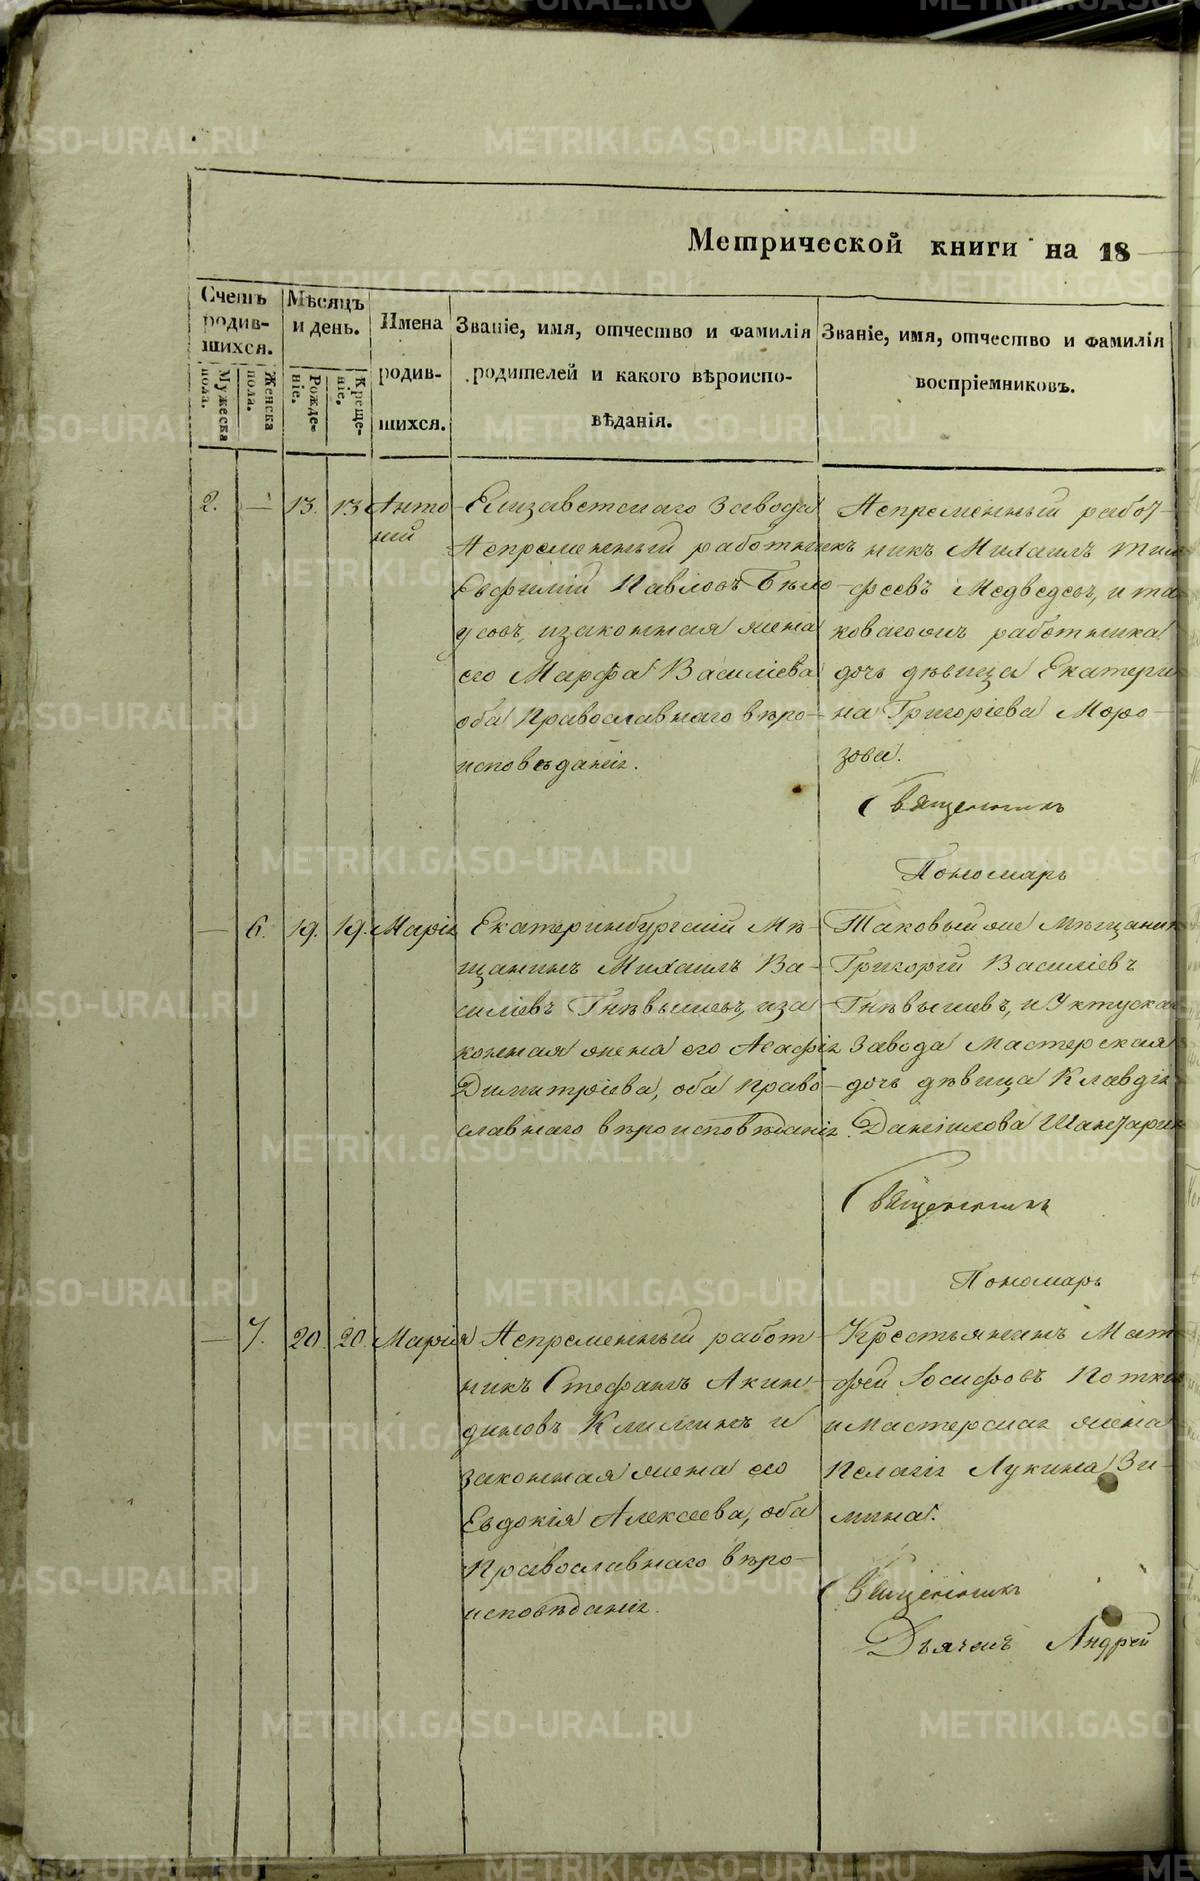 Метрической книги на 18
Счетъ родив-шихся.
Мужеска пола.
Женска пола.
Мѣсяцъ и день.
Рожде-ніе.
Креще-ніе.
Имена родив-шихся.
Званіе, имя, отчество и фамилія
родителей и какого вѣроиспо-
вѣданія.
Званіе, имя, отчество и фамилія
воспріемниковъ.
2. — 13. 13 Анто
ній
Елизаветскаго Завода
Непременный работникъ
Евфимій Павловъ Бѣло
усовъ, изаконная жена
его Марфа Василіева
оба Православнаго вѣро-
исповѣданія.
Непременный работ-
никъ Михаилъ Тим
феевъ Медведевъ, и та
коваго жъ работника
дочь дѣвица Екатери
на Григоріева Моро-
зова.
Священникъ
Пономарь
— 6. 19. 19. Марія
Екатеринбургскій Мѣ-
щанинъ Михаилъ Ва-
силіевъ Гнѣвышевъ, иза
конная жена его Агафія
Димитріева, оба Право-
славнаго вѣроисповѣданія.
Таковый же Мѣщанин
Григорій Василіевъ
Гнѣвышевъ, и Уктуска
Завода Мастерская
дочь дѣвица Клавдія
Даніилова
Священникъ
Пономарь
— 7. 20. 20. Марія
Непременный работ-
никъ Стефанъ Акин-
диновъ Климинъ и
законная жена его
Евдокія Алексеева, оба
Православнаго вѣро-
исповѣданія.
Крестьянинъ Мат
фей Іосифовъ
и Мастерская жена
Пелагія Лукина Зи-
мина.
Священникъ
Дьячекъ Андрей
METRIKI.GASO-URAL.RU